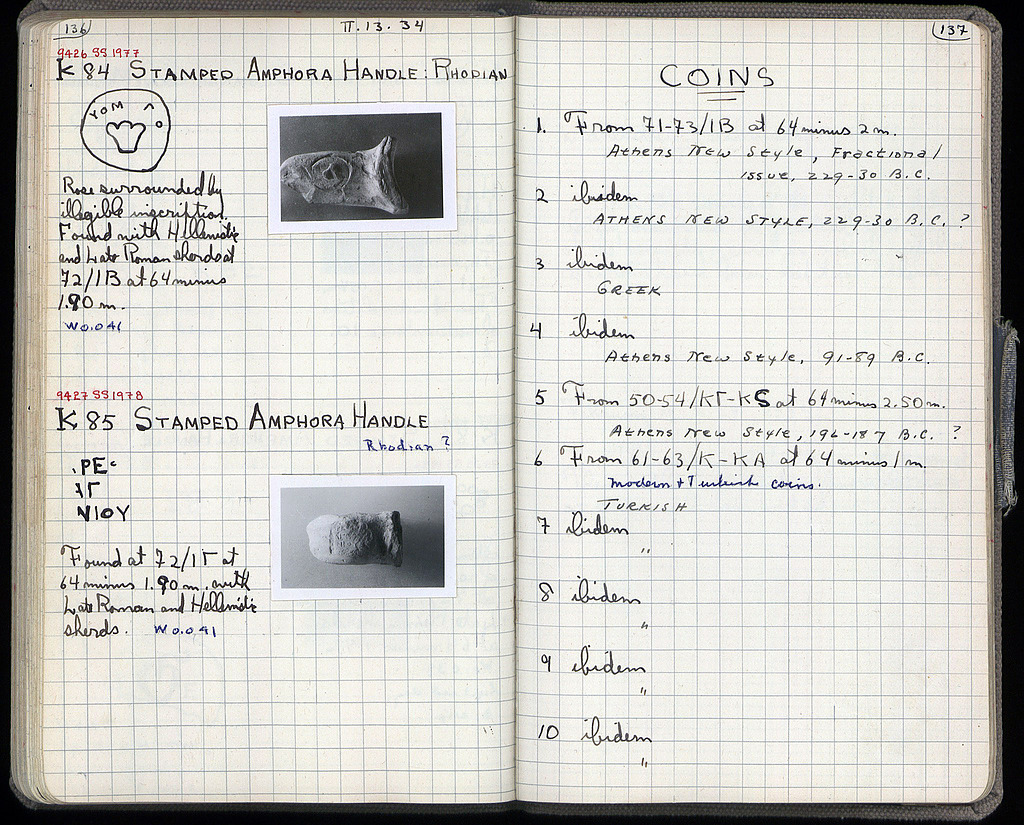 136
II.13.34
9426 SS 1977
K 84 STAMPED AMPHORA HANDLE: RHODIAN
Rose surrounded by
illegible inscription.
Found with Hellenistic
and Late Roman sherds at
72/ΙΒ at 64 minus
1.90 m.
W 0.041
9427 SS 1978
K 85 STAMPED AMPHORA HANDLE
Rhodian ?
ΝΙΟΥ
Found at 72/ΙΓ at
64 minus 1.90 m. with
Late Roman and Hellenistic
sherds. W 0.041
137
COINS
1. From 71-73/ΙΒ at 64 minus 2 m.
Athens New Style, Fractional
issue, 229-30 B.C.
2 ibidem
ATHENS NEW STYLE, 229-30 B.C. ?
3 ibidem
GREEK
4 ibidem
Athens New Style, 91-89 B.C.
5 From 50-54/ΚΓ-ΚS at 64 minus 2.50 m.
Athens New Style, 196-187 B.C. ?
6 From 61-63/Κ-ΚΑ at 64 minus 1 m.
modern + Turkish coins.
TURKISH
7 ibidem
"
8 ibidem
"
9 ibidem
"
10 ibidem
"